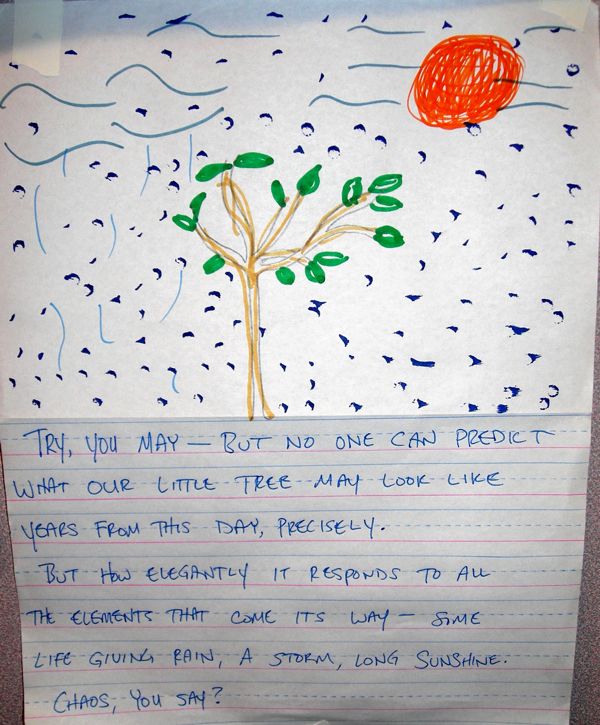 TRY, YOU MAY — BUT NO ONE CAN PREDICT
WHAT OUR LITTLE TREE MAY LOOK LIKE
YEARS FROM THIS DAY, PRECISELY.
BUT HOW ELEGANTLY IT RESPONDS TO ALL
THE ELEMENTS THAT COME ITS WAY — SOME
LIFE GIVING RAIN, A STORM, LONG SUNSHINE.
CHAOS, YOU SAY?